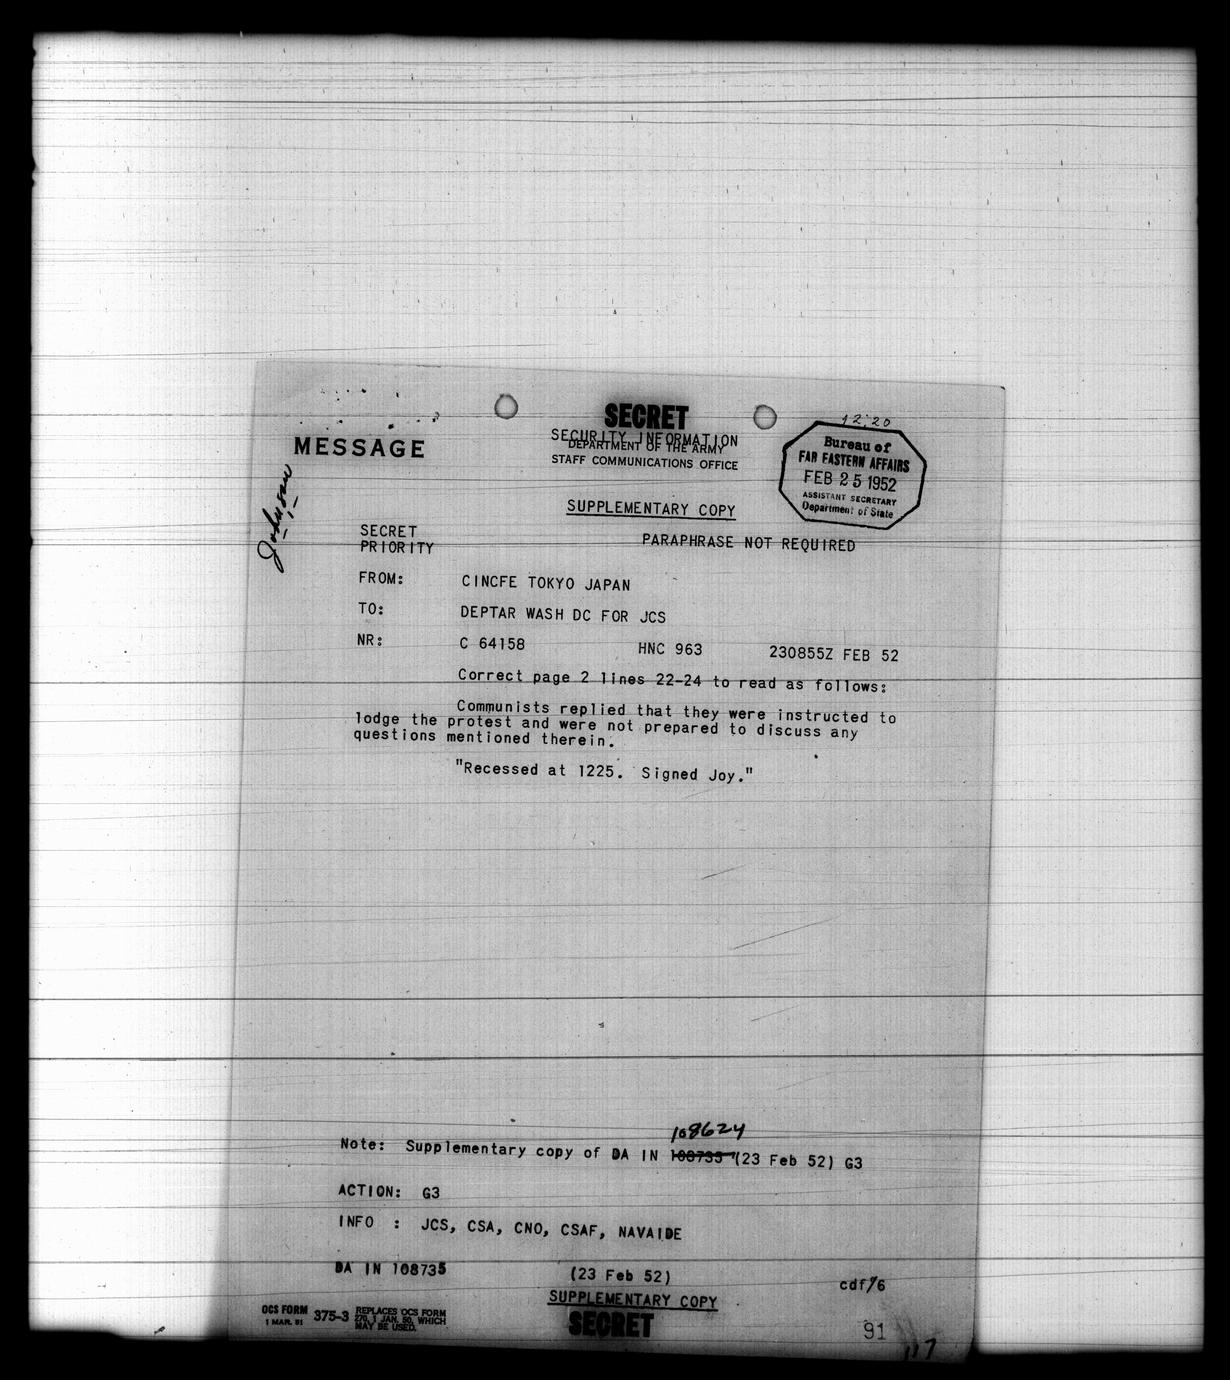 12:20
SECRET
SECURITY INFORMATION
DEPARTMENT OF THE ARMY
STAFF COMMUNICATIONS OFFICE
MESSAGE
Bureau of
FAR EASTERN AFFAIRS
FEB 25 1952
ASSISTANT SECRETARY
Department of State
Johnson
SUPPLEMENTARY COPY
SECRET
PRIORITY
PARAPHRASE NOT REQUIRED
FROM: CINCFE TOKYO JAPAN
TO: DEPTAR WASH DC FOR JCS
NR: C 64158 HNC 963 230855Z FEB 52
Correct page 2 lines 22-24 to read as follows:
Communists replied that they were instructed to
lodge the protest and were not prepared to discuss any
questions mentioned therein.
"Recessed at 1225. Signed Joy."
108624
Note: Supplementary copy of DA IN 108735 (23 Feb 52) G3
ACTION: G3
INFO : JCS, CSA, CNO, CSAF, NAVAIDE
DA IN 108735 (23 Feb 52) cdf/6
SUPPLEMENTARY COPY
SECRET
OCS FORM 375-3 REPLACES OCS FORM
1 MAR. 51 270, 1 JAN. 50, WHICH
MAY BE USED.
91